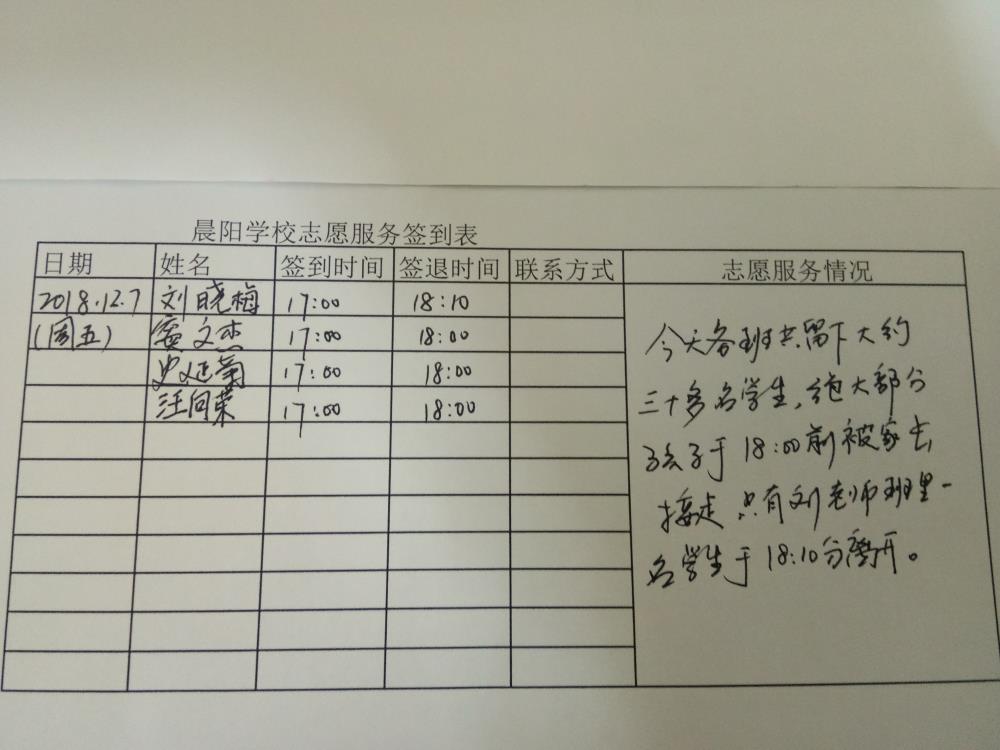 晨阳学校志愿服务签到表
日期 姓名 签到时间 签退时间 联系方式 志愿服务情况
2018.12.7 刘晓梅 17:00 18:10
(周五) 窦文杰 17:00 18:00
史延菊 17:00 18:00
汪向荣 17:00 18:00
今天各班共留下大约
三十多名学生,绝大部分
孩子于18:00前被家长
接走 只有刘老师班里一
名学生于18:10分离开。